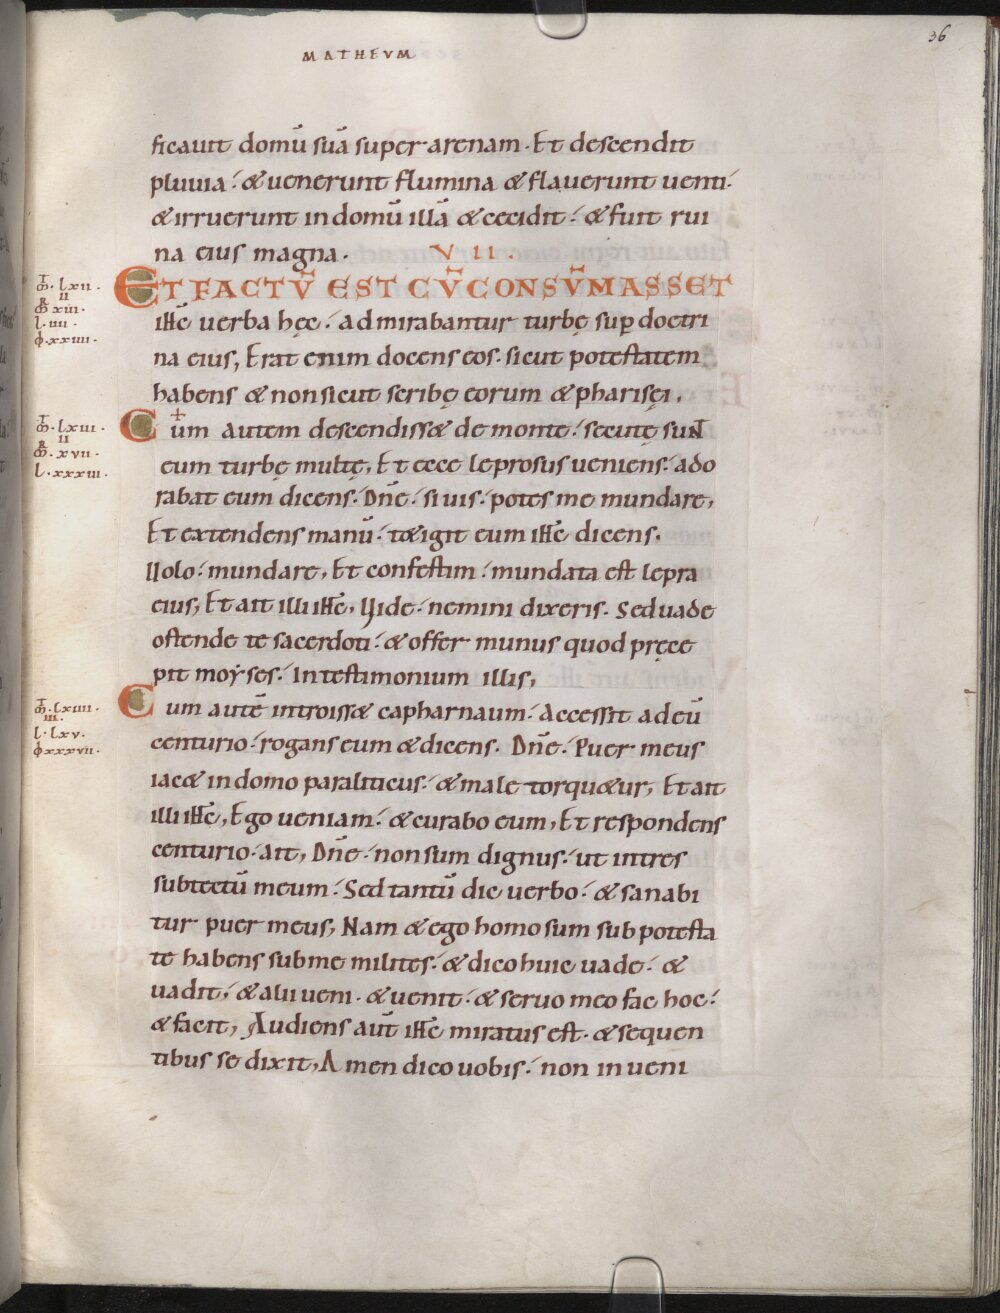 MATHEVM
36
ficauit domū suā super arenam. Et descendit
pluuia. & uenerunt flumina & flauerunt uenti.
& irruerunt in domū illā & cecidit. & fuit rui
na eius magna. VII.
ET FACTV̄ EST CV̄ CONSV̄MASSET
m̅. lxii.
ii
R̅ xiii.
l. iiii.
ꝟ. xxiiii.
ihc̄ uerba hęc. admirabantur turbę sup doctri
na eius, Erat enim docens eos. sicut potestatem
habens & non sicut scribę eorum & pharisęi.
m̅. lxiii.
ii
R̅. xvii.
l. xxxiii.
Cum autem descendiss& de monte. secutę sunt
eum turbę multę, Et ecce leprosus ueniens. ado
rabat eum dicens. Dn̄e. si uis. potes me mundare,
Et extendens manū. t&igit eum ihc̄ dicens.
Uolo. mundare, Et confestim. mundata est lepra
eius, Et ait illi ihc̄, Uide. nemini dixeris. Sed uade
ostende te sacerdoti. & offer munus quod pręce
pit moẏses. In testimonium illis,
m̅. lxiiii.
iii.
l. lxv.
ꝟ xxxvii.
Cum autē introiss& capharnaum. Accessit ad eū
centurio. rogans eum & dicens. Dn̄e. Puer meus
iac& in domo paraliticus. & male torqu&ur, Et ait
illi ihc̄, Ego ueniam. & curabo eum, Et respondens
centurio. ait, Dn̄e. non sum dignus. ut intres
sub tectū meum. Sed tantū dic uerbo. & sanabi
tur puer meus, Nam & ego homo sum sub potesta
te habens sub me milites. & dico huic uade. &
uadit, & alii ueni. & uenit. & seruo meo fac hoc.
& facit, Audiens aut̄ ihc̄ miratus est. & sequen
tibus se dixit, Amen dico uobis. non inueni